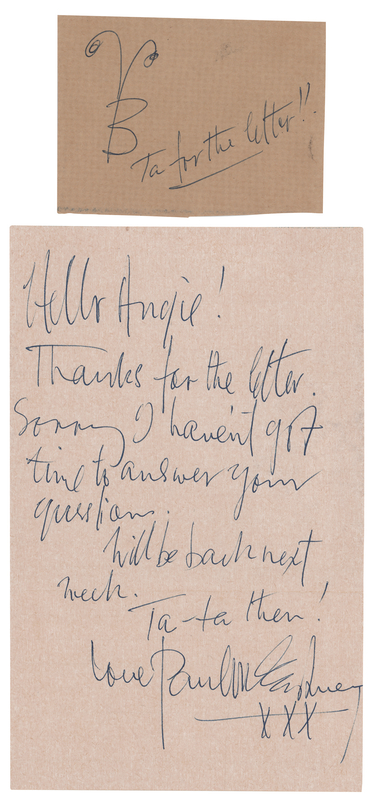 B
Ta for the letter!!
Hello Angie!
Thanks for the letter.
Sorry I haven't got
time to answer your
questions.
Will be back next
week.
Ta-ta then!
love Paul McCartney
XXX